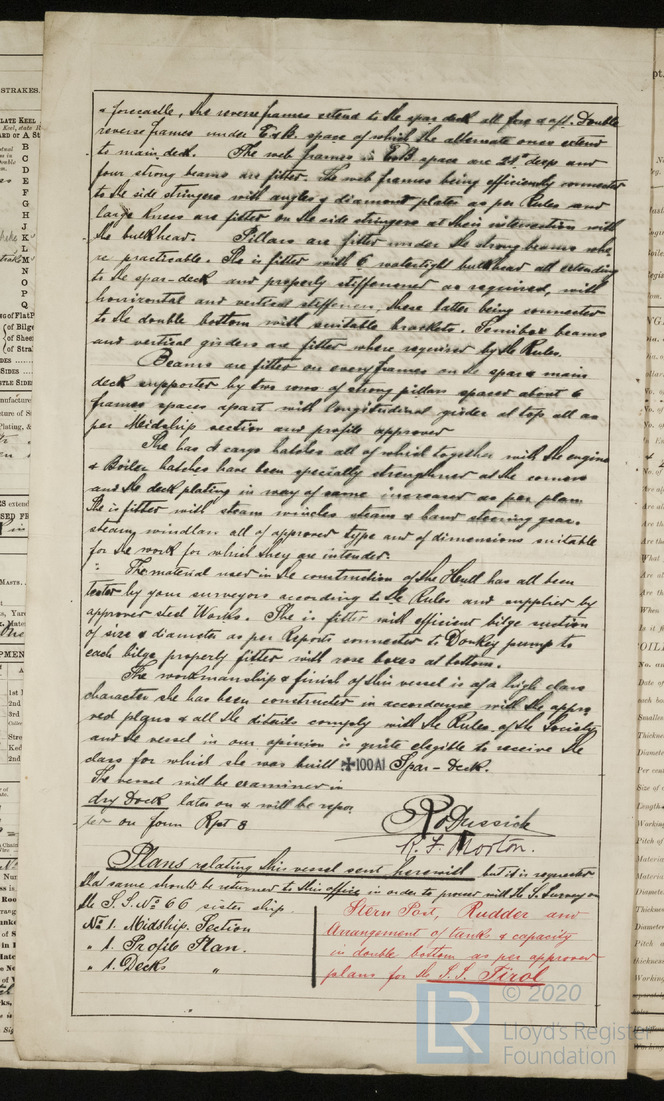 & forecastle, the reverse frames extend to the spar deck all fore & aft. Double
reverse frames under E & B. space of which the alternate ones extend
to main deck. The web frames in E & B space are 24" deep and
four strong beams are fitter. The web frames being efficiently connected
to the side stringers with angles & diamond plates as per Rules and
large knees are fitted on the side stringers at their intersection with
the bulkhead. Pillars are fitter under the strong beams whe
re practicable. She is fitter with 6 watertight bulkhead all extending
to the spar-deck and properly stiffenered as required, with
horizontal and vertical stiffeners, these latter being connected
to the double bottom with suitable brackets. Semibox beams
and vertical girders are fitter where required by the Rules.
Beams are fitter on every frames on the spar & main
deck supporter by two rows of strong pillars spaced about 6
frames spaces apart with longitudinal girder at top all as
per Meidship section and profile approved
She has 4 cargo hatches all of which together with the engine
& Boiler hatches have been specially strengthener at the corners
and the deck plating in way of same increased as per plan.
She is fitter with steam winches steam & hand steering gear.
steam windlass all of approved type and of dimensions suitable
for the work for which they are intender.
The material used in the construction of the Heull has all been
tester by your surveyors according to the Rules and supplied by
approver steel Works. She is fitter with efficient bilge suction
of size & diameter as per Reports connecter to Donkey pump to
each bilge properly fitter with rose boxes at bottom.
The workmanship & finish of this vessel is of a high class
character she has been constructed in accordance with the appro
ved plans & all the details comply with the Rules of the Society
and the vessel in our opinion is quite elegible to receive the
class for which she was built ✠100A1 Spar-Deck.
The vessel will be examiner in
dry Dock later on & will be repor
ter on form Rpt 8
R. F. Morton.
Plans relating this vessel sent herewith but it is requested
that same should be returned to this office in order to proceed with the S. Survey on
the S.S. No 66 sister ship.
No 1. Midship. Section
" 1. Profile Plan.
" 1. Decks "
Stern Post, Rudder and
Arrangement of tanks & capacity
in double bottom as per approver
plans for the S.S. Tirol
© 2020
LR
Lloyd's Register
Foundation
STRAKES.